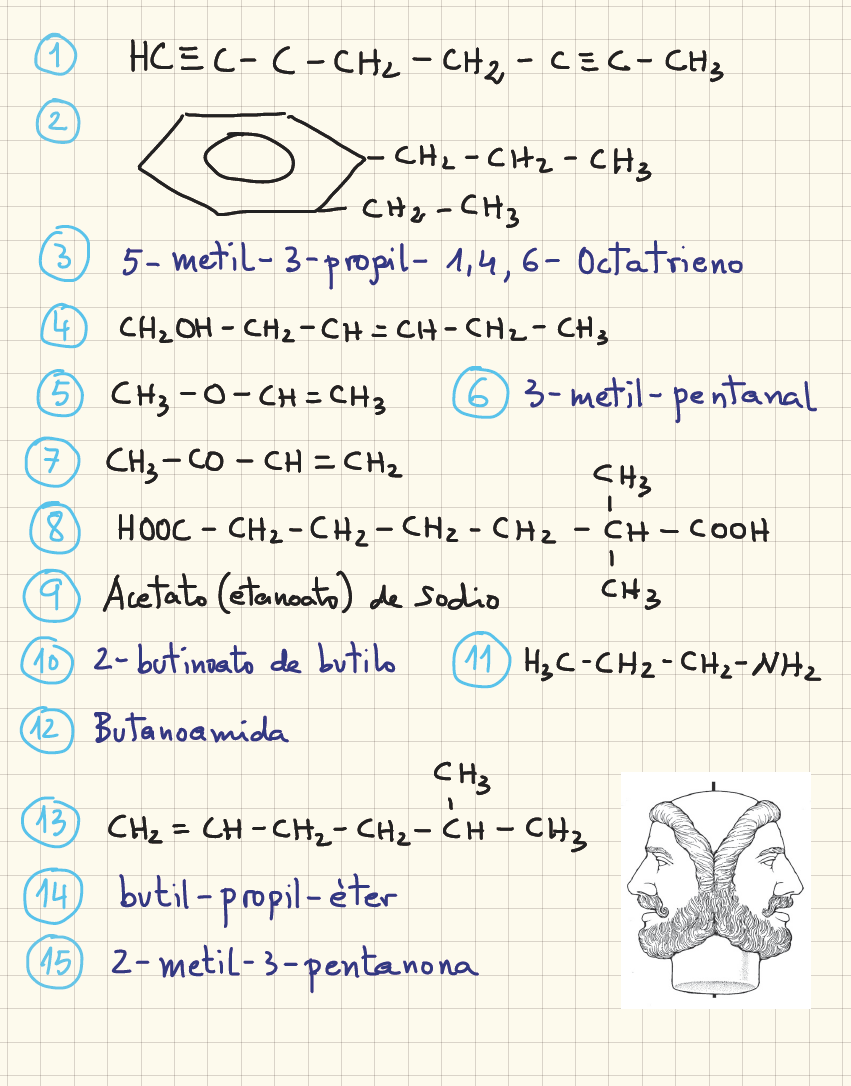 1 HC≡C- C -CH₂ -CH₂ - C≡C- CH₃
2
-CH₂ -CH₂ - CH₃
CH₂ -CH₃
3 5- metil- 3-propil- 1,4,6- Octatrieno
4 CH₂OH-CH₂-CH=CH-CH₂-CH₃
5 CH₃-O-CH=CH₃ 6 3-metil-pentanal
7 CH₃-CO-CH=CH₂
CH₃
8 HOOC-CH₂-CH₂-CH₂-CH₂-CH-COOH
CH₃
9 Acetato (etanoato) de sodio
10 2-butinoato de butilo 11 H₃C-CH₂-CH₂-NH₂
12 Butanoamida
CH₃
13 CH₂=CH-CH₂-CH₂-CH-CH₃
14 butil-propil-èter
15 2-metil-3-pentanona